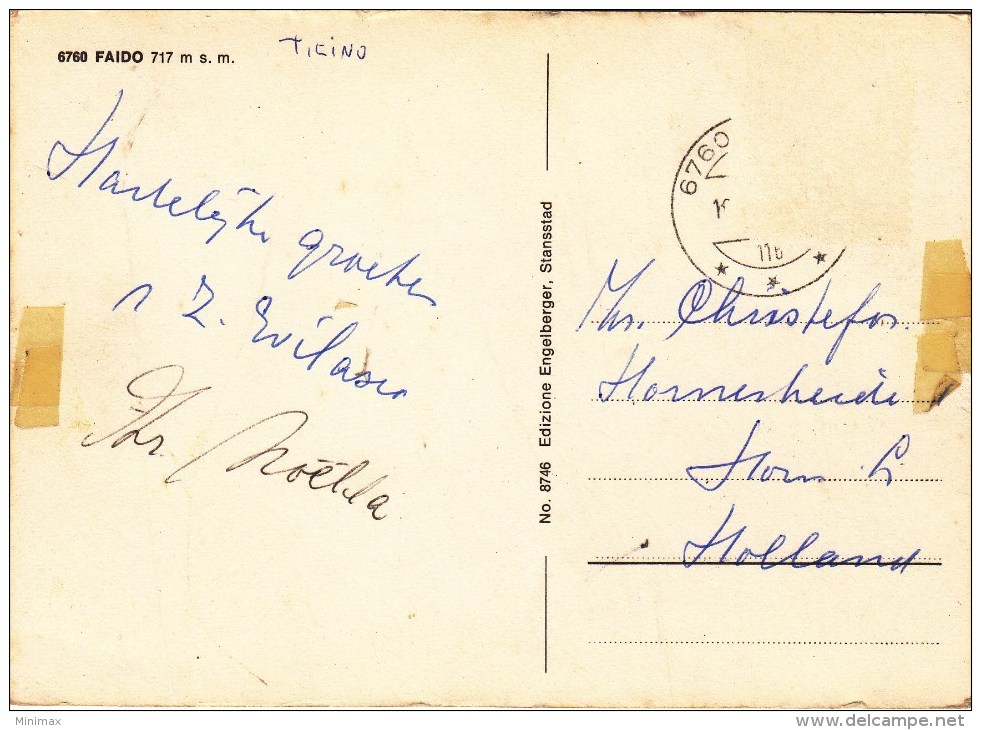 6760 FAIDO 717 m s. m.
TICINO
Hartelijke groeten
Z. Evilasia
Zr. Noëlla
No. 8746 Edizione Engelberger, Stansstad
6760
Zrs. Christofoor
Hornerheide
Horn L.
Holland
Minimax
www.delcampe.net